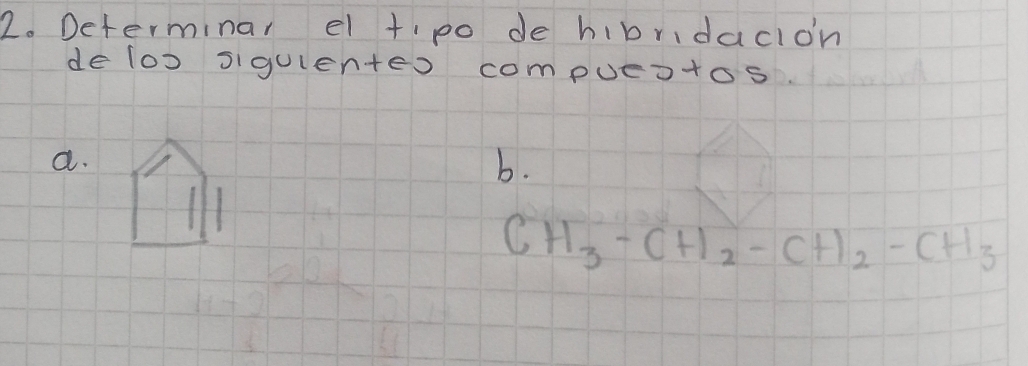 2. Determinar el tipo de hibridación
de los siguientes compuestos.
a.
b.
CH3 - CH2 - CH2 - CH3